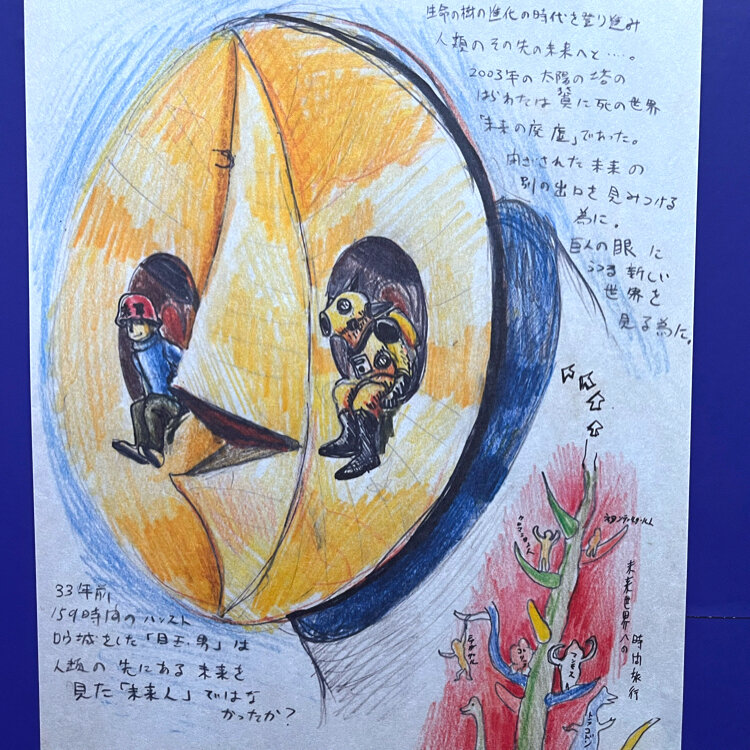 生命の樹の進化の時代を登り進み
人類のその先の未来へと….。
2003年の太陽の塔の
はらわたは実に死の世界
「未来の廃虚」であった。
閉ざされた未来の
別の出口を見みつける
為に。
巨人の眼に
うつる新しい
世界を
見る為に。
33年前
159時間のハンスト
ロウ城をした「目玉男」は
人類の先にある未来を
見た「未来人」ではな
かったか?
クロマニョンじん
ネアンデルタールじん
未来世界への
時間旅行
ゴリラ
マンモス